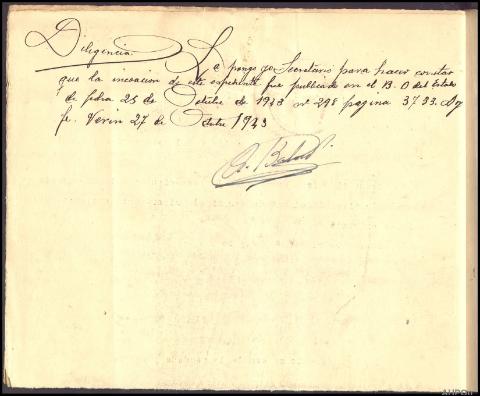 Diligencia. La pongo yo Secretario para hacer constar
que la incoacion de este expediente fue publicado en el B. O del Estado
de fecha 25 de Octubre de 1943 nº 298 pagina 37.33. Doy
fe. Verin 27 de Octubre 1943
AHPOu